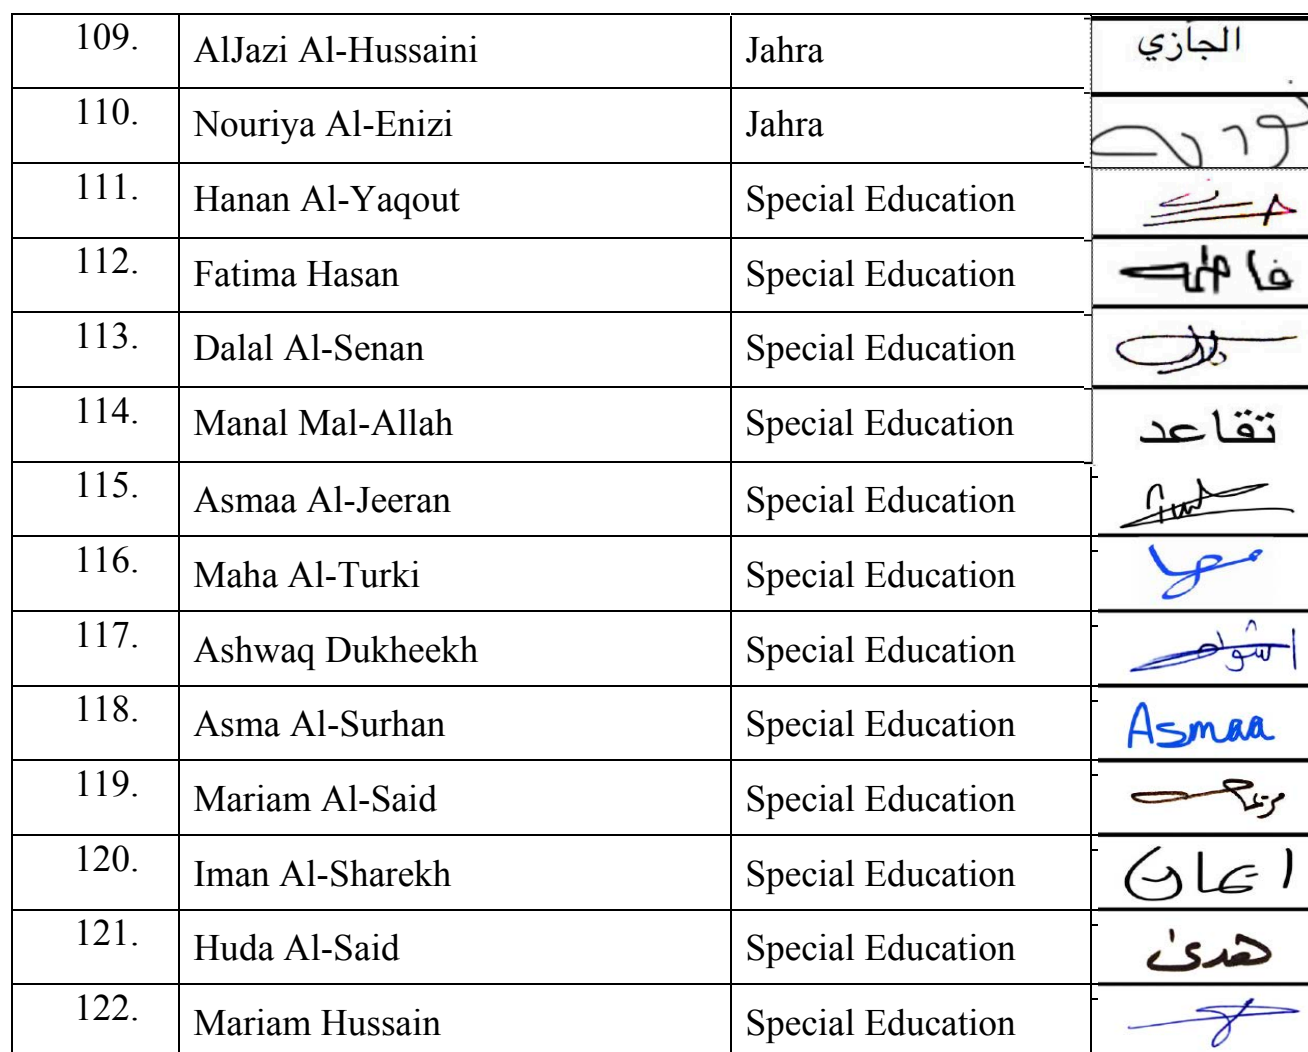 109. AlJazi Al-Hussaini Jahra الجازي
110. Nouriya Al-Enizi Jahra نورية
111. Hanan Al-Yaqout Special Education
112. Fatima Hasan Special Education فاطمة
113. Dalal Al-Senan Special Education دلال
114. Manal Mal-Allah Special Education تقاعد
115. Asmaa Al-Jeeran Special Education
116. Maha Al-Turki Special Education مها
117. Ashwaq Dukheekh Special Education اشواق
118. Asma Al-Surhan Special Education Asmaa
119. Mariam Al-Said Special Education
120. Iman Al-Sharekh Special Education ايمان
121. Huda Al-Said Special Education هدى
122. Mariam Hussain Special Education